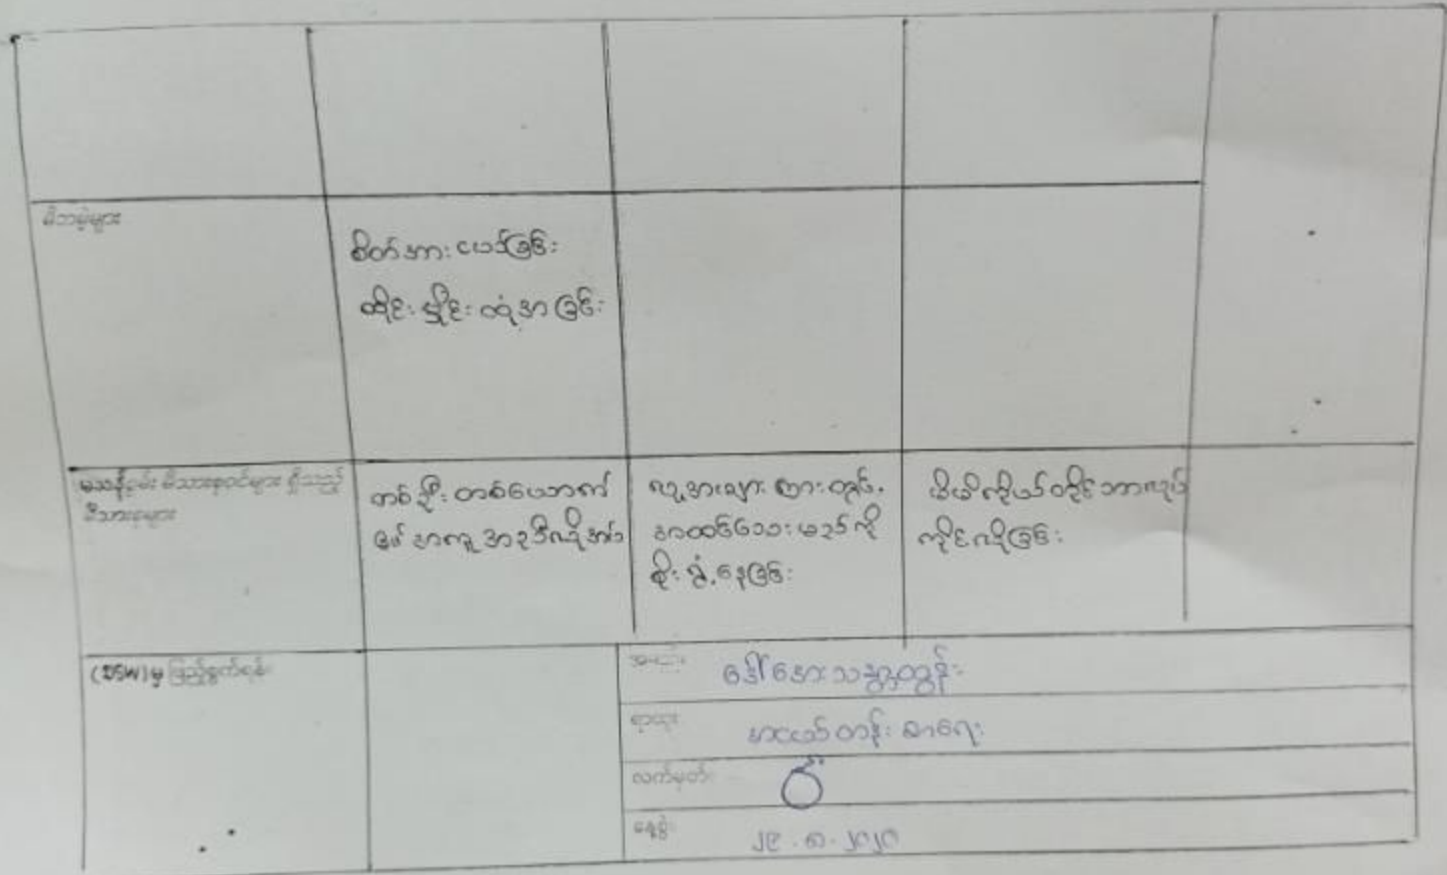 မိဘမဲ့များ
စိတ်အားငယ်ခြင်း
ထိုင်းမှိုင်းထုံအာခြင်း
မသန်စွမ်း မိသားစုဝင်များ ရှိသည့်
မိသားစုများ
တစ်ဦးတစ်ယောက်
၏အကူအညီလိုအပ်
လူအများကြားတွင်
အထင်သေးမည်ကို
စိုးရွံ့နေခြင်း
မိမိကိုယ်တိုင်ဘာလုပ်
ကိုင်လိုခြင်း
(DSW)မှ ဖြည့်စွက်ရန်
အမည်
ဒေါ်အေးသန္တာထွန်း
ရာထူး
အငယ်တန်းစာရေး
လက်မှတ်
နေ့စွဲ
၂၉.၈.၂၀၂၀